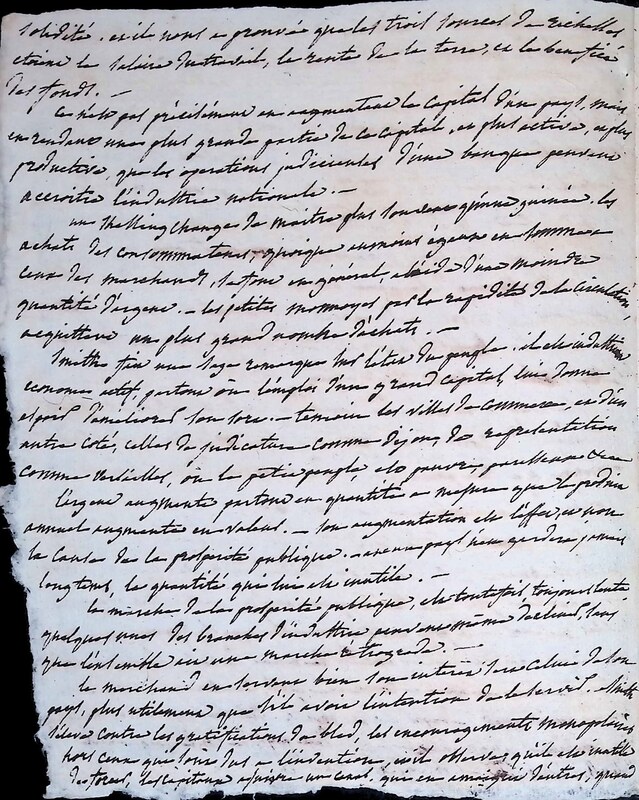 solidité. et il nous a prouvé que les trois sources de richesses
étoient le salaire du travail, la rente de la terre, et le bénéfice
des fonds. —
Ce n'est pas précisément en augmentant le capital d'un pays, mais
en rendant une plus grande partie de ce capital, et plus active, et plus
productive, que les opérations judicieuses d'une banque peuvent
accroitre l'industrie nationale. —
un shelling change de maitre plus souvent qu'une guinée. les
achats des consommateurs, quoique au moins égaux en somme a
ceux des marchands, se font en général, à l'aide d'une moindre
quantité d'argent. — les petites monnoyes par la rapidité de la circulation,
acquittent un plus grand nombre d'achats. —
Smith fait une sage remarque sur l'état du peuple. il est industrieux
econome actif, partout où l'emploi d'un grand capital, lui donne
espoir d'améliorer son sort. — temoin les villes de commerce, et d'un
autre coté, celles de judicature comme dijon, de représentation
comme versailles, où le petit peuple, est pauvre, paresseux
l'argent augmente partout en quantité a mesure que le produit
annuel augmente en valeur. — son augmentation est l'effet, et non
la cause de la prospérité publique. — aucun pays ne gardera jamais
longtems, la quantité qui lui est inutile. —
la marche de la prospérité publique, est toutefois toujours lente
quelques unes des branches d'industrie peuvent même décliner, sans
que l'ensemble ait une marche rétrograde. —
le marchand en servant bien son intérêt sert celui de son
pays, plus utilement que s'il avoit l'intention de le servir. Smith
s'élève contre les gratifications du bled, les encouragements monopolaires
hors ceux que l'on dut a l'indention, et il observe qu'il est inutile
de forcer, les capitaux a suivre un canal, qui en a d'autres, quand